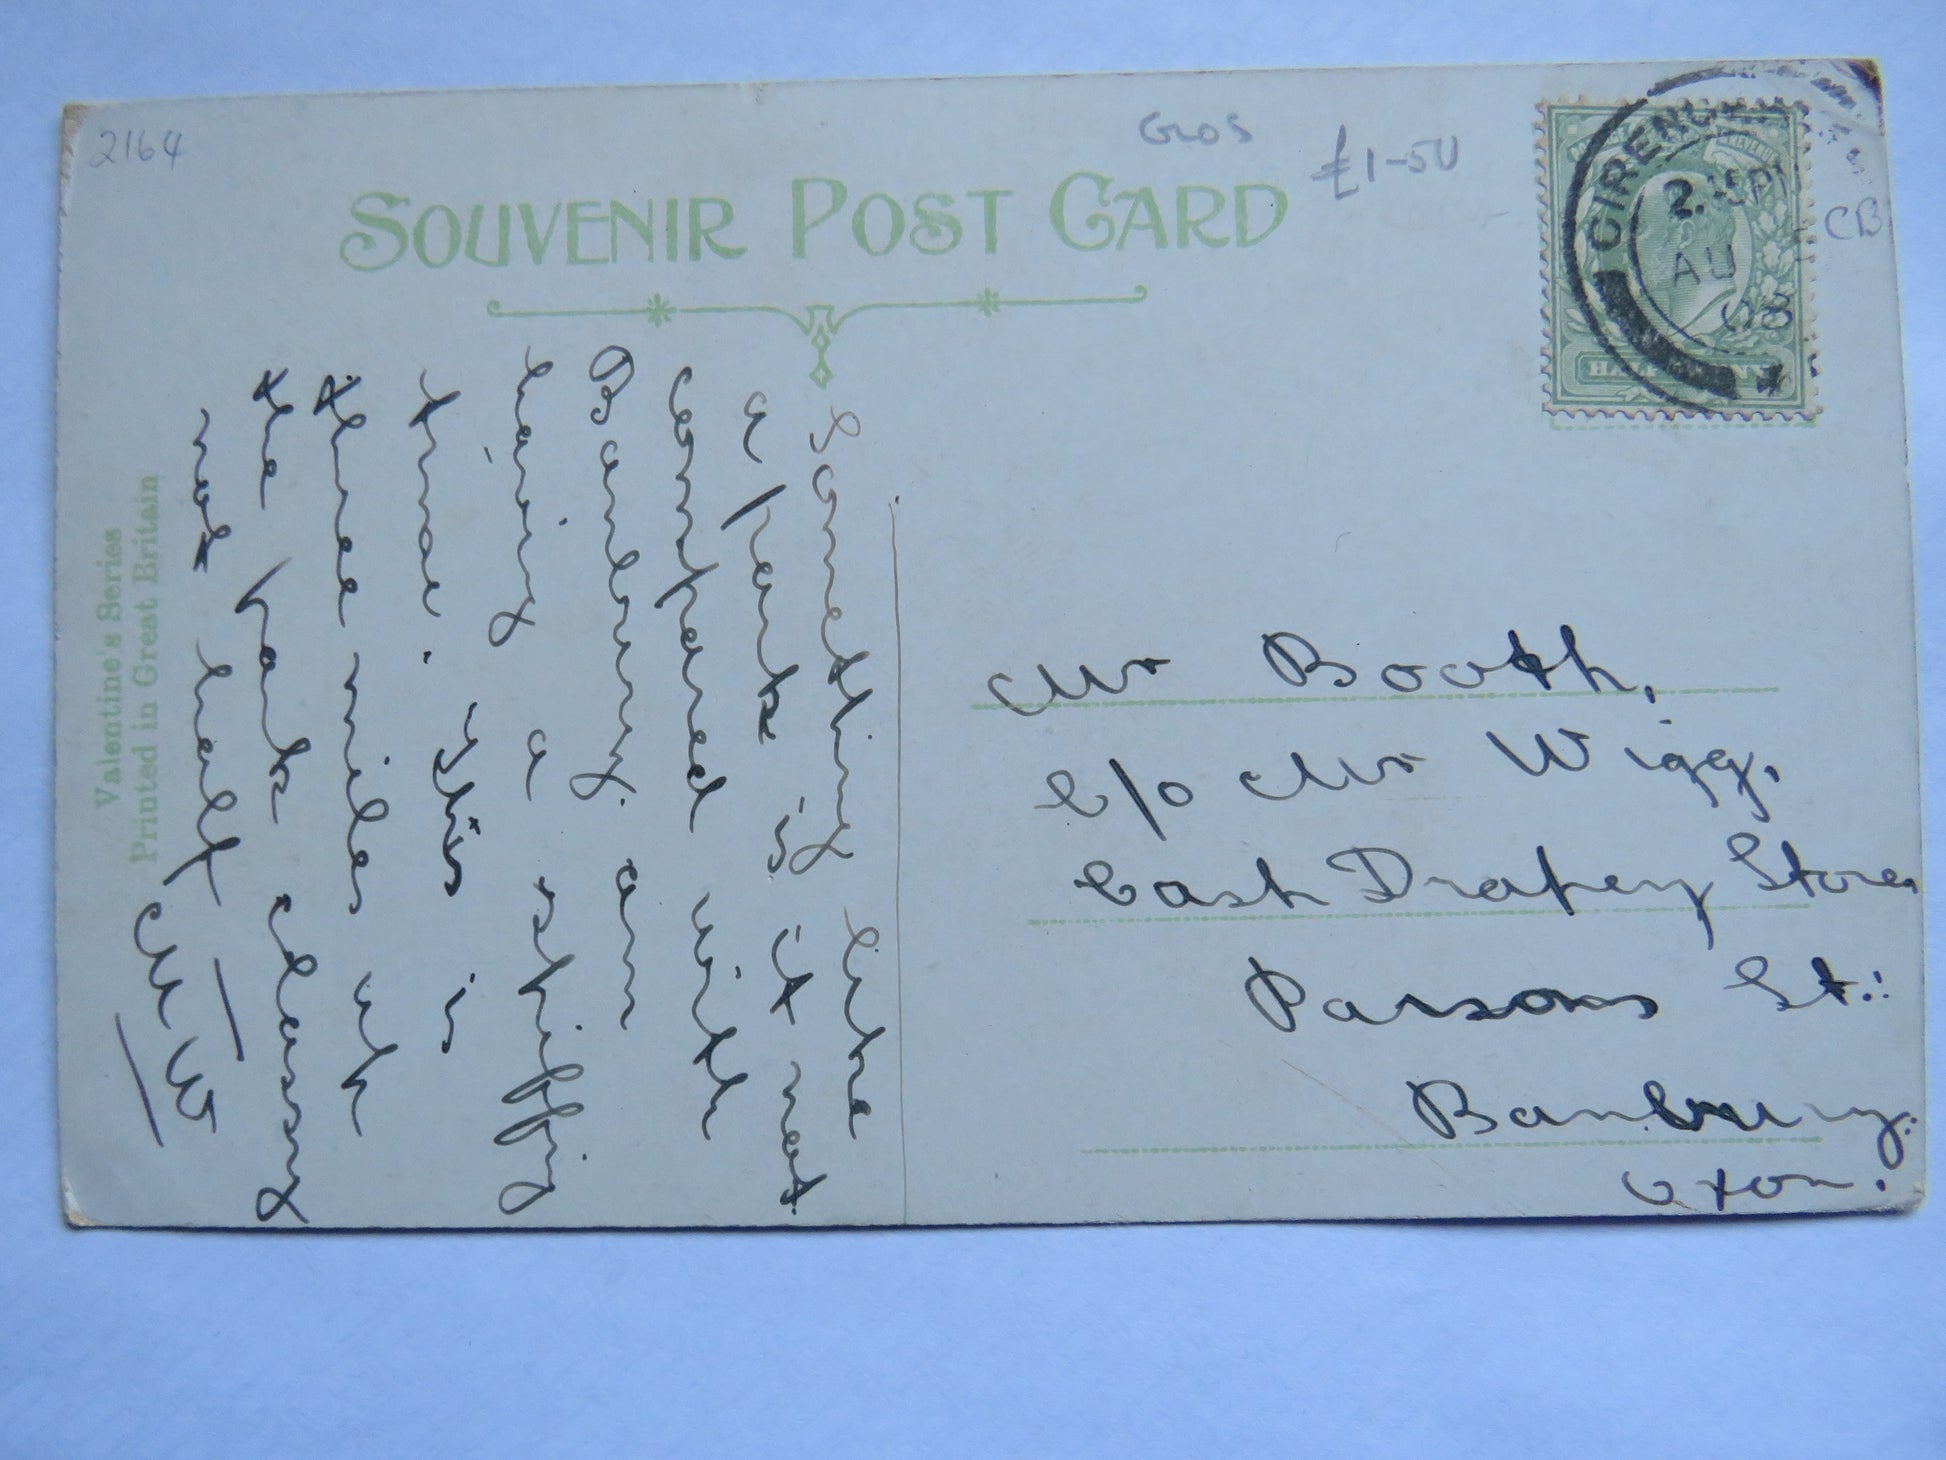 2164
GLOS
£1-50
CB
SOUVENIR POST CARD
CIRENC
AU
08
HALF
Something like
a park is it not
compared with
Banbury. am
having a spiffy
time. This is
three miles up
the park classy
not half
M W
Valentine's Series
Printed in Great Britain
Mr Booth,
C/o Mr Wigg,
Cash Drapery Stores
Parsons St:
Banbury.
Oxon.